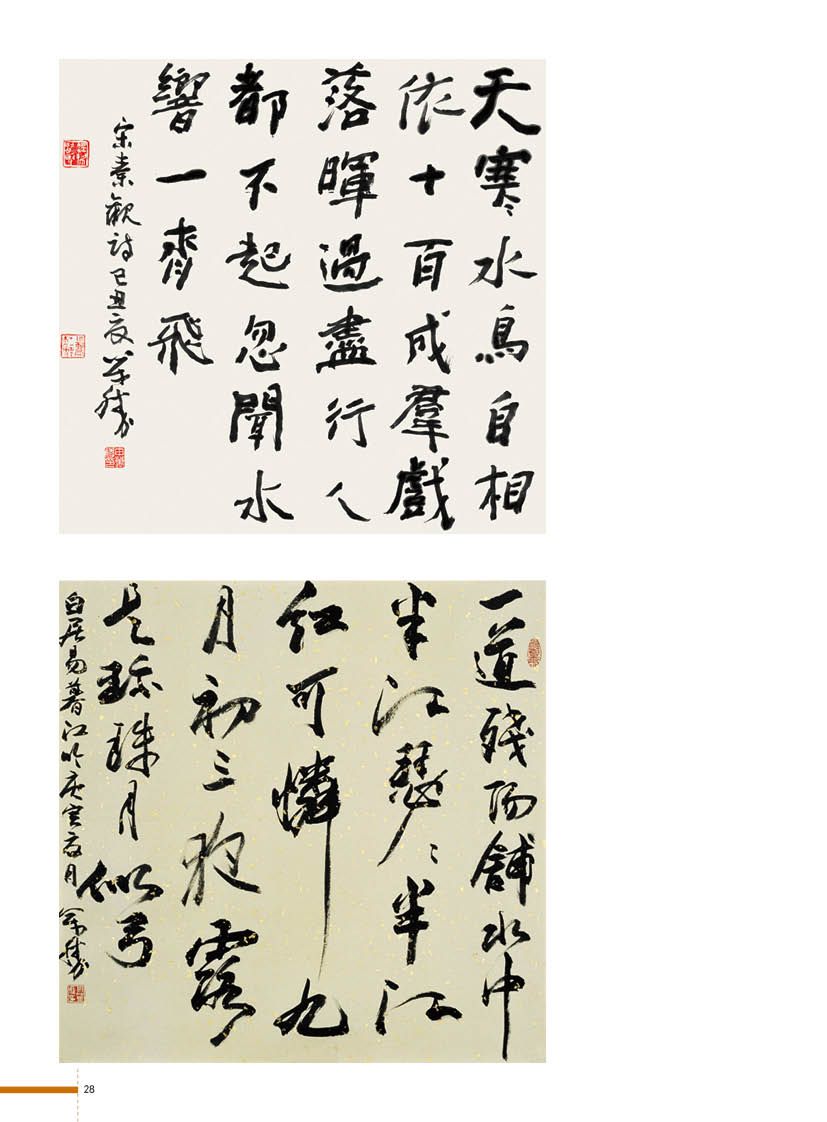 天寒水鳥自相
依十百成羣戲
落暉過盡行人
都不起忽聞水
響一齊飛
宋秦觀詩己丑夏
一道殘陽舖水中
半江瑟〻半江
紅可憐九
月初三夜露
是珎珠月似弓
白居易暮江吟庚寅夏月
28